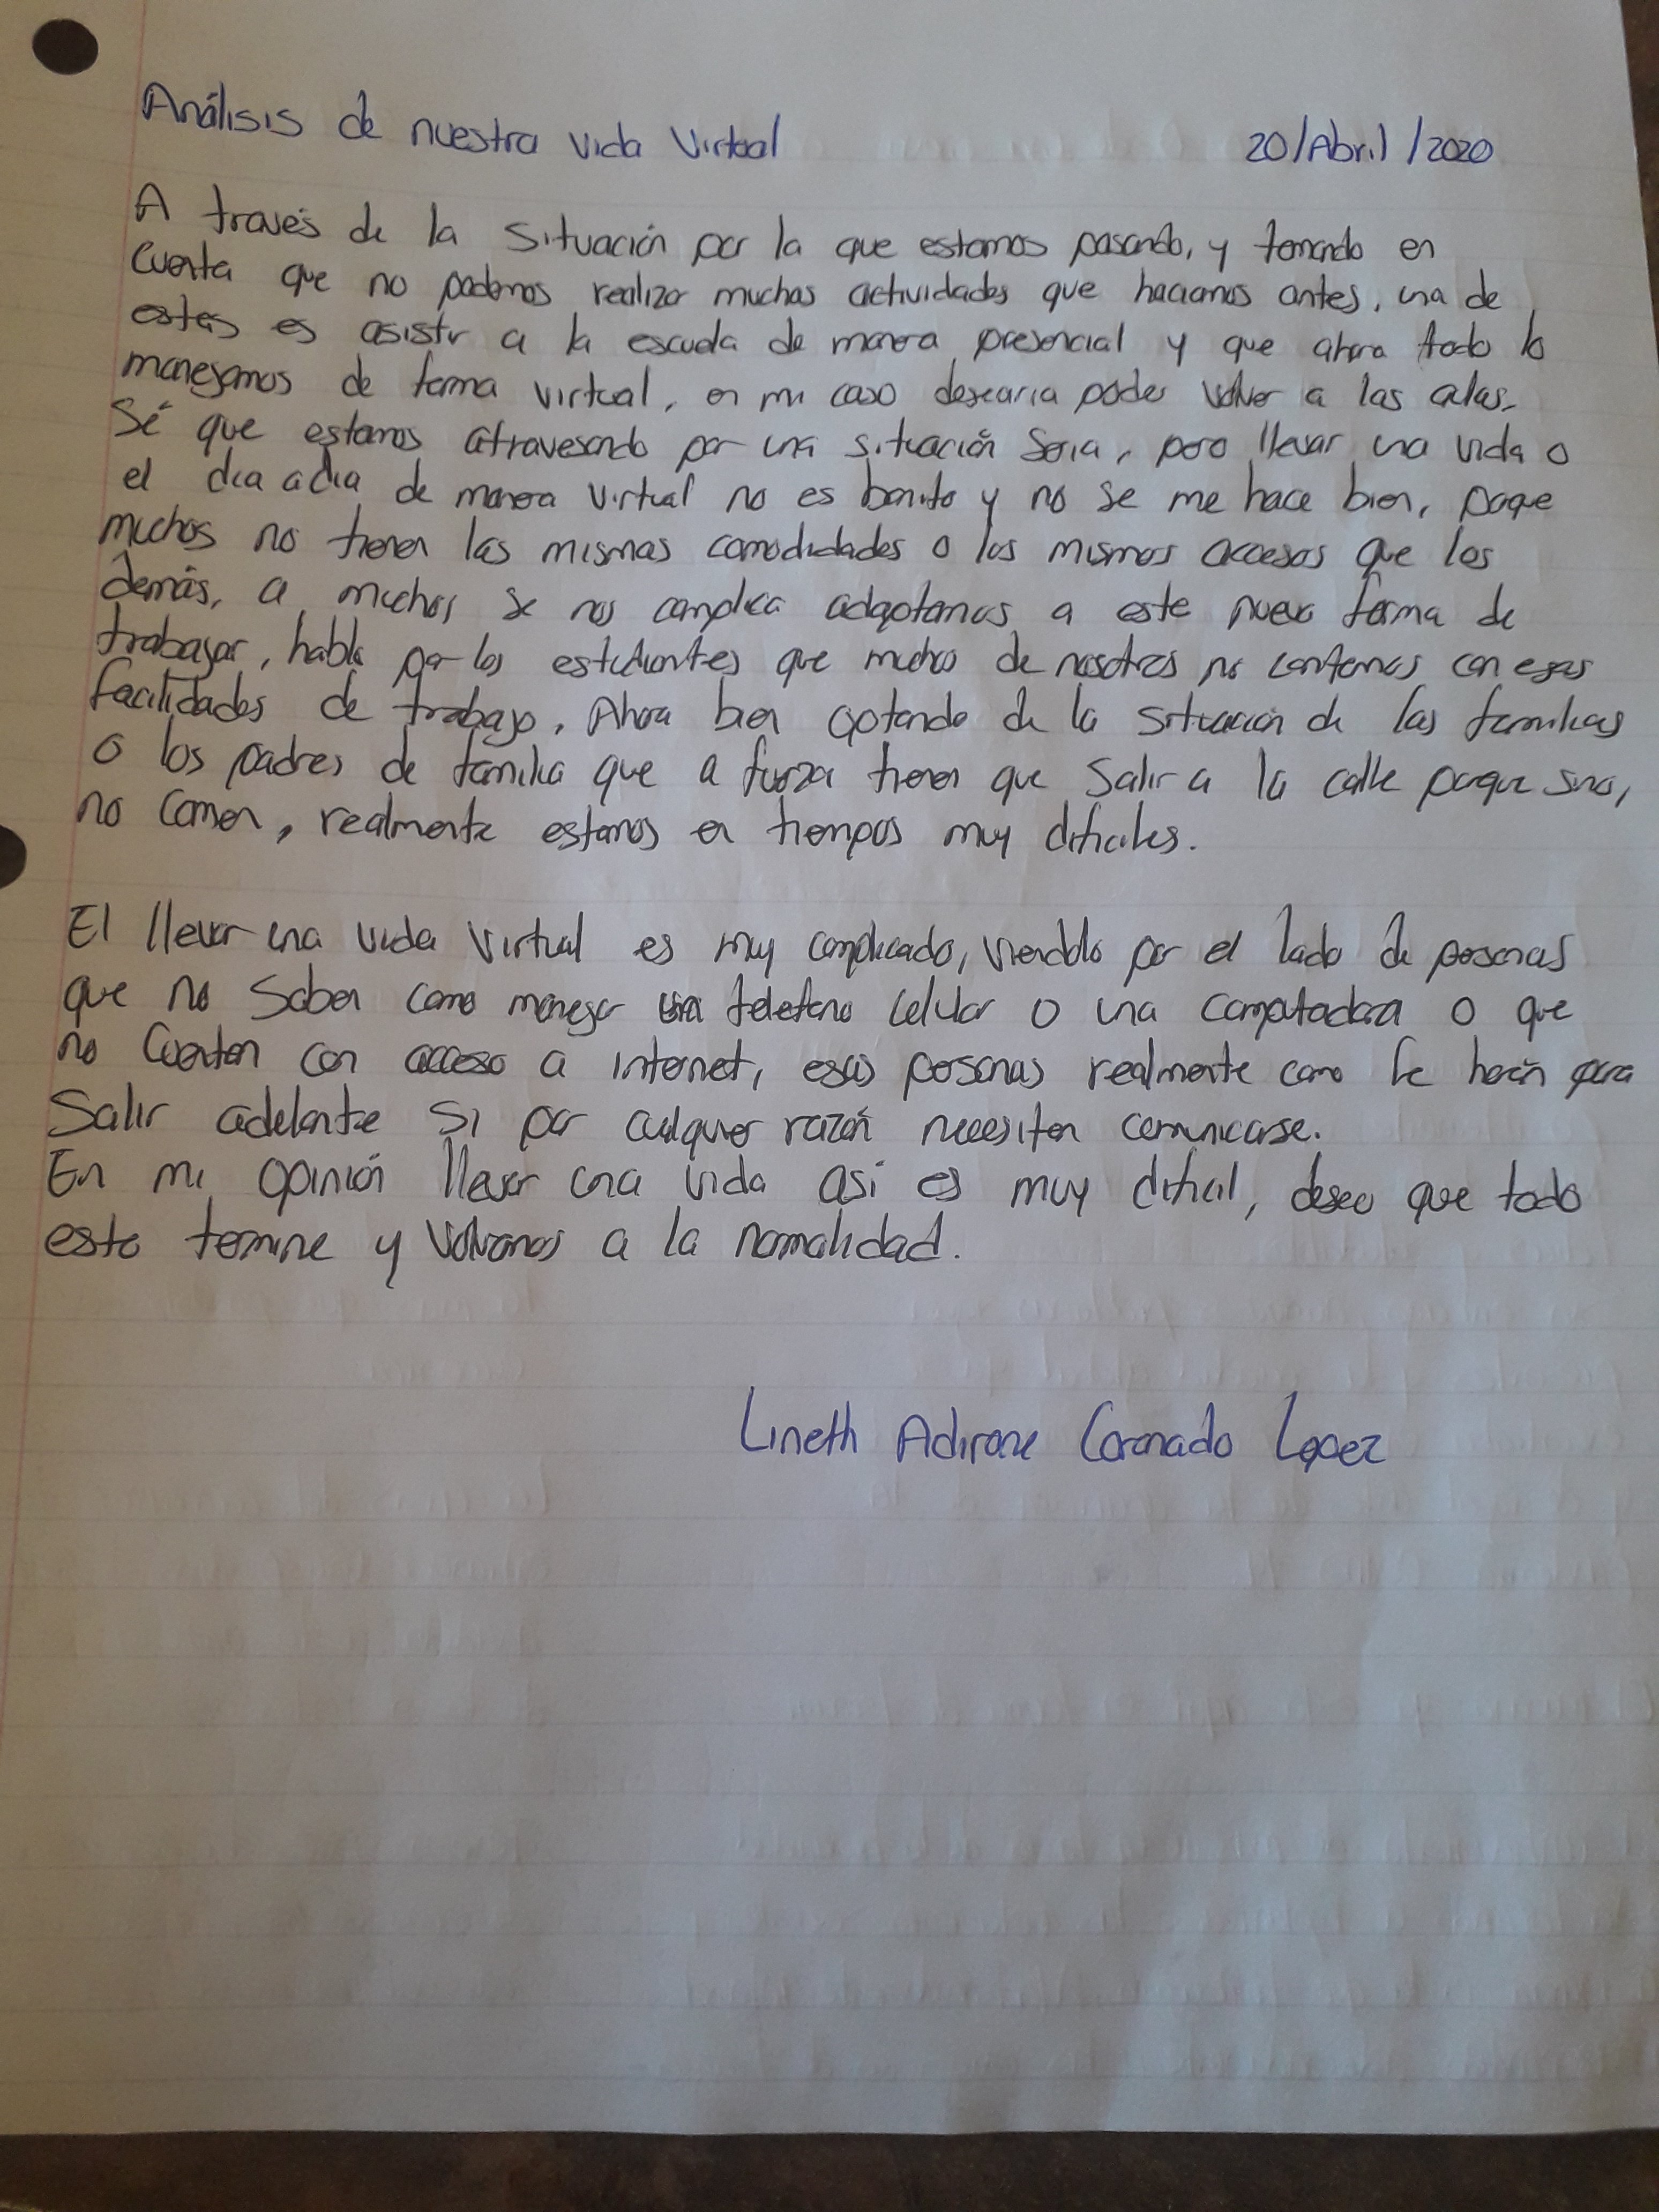 Análisis de nuestra vida Virtual 20/Abril/2020
A través de la Situación por la que estamos pasando, y tomando en
Cuenta que no podemos realizar muchas actividades que haciamos antes, una de
estas es asistir a la escuela de manera presencial y que ahora todo lo
manejamos de forma virtual, en mi caso desearia poder volver a las aulas.
Sé que estamos atravesando por una situación Seria, pero llevar una vida o
el dia a dia de manera virtual no es bonito y no se me hace bien, porque
muchos no tienen las mismas comodidades o los mismos accesos que los
demás, a muchos se nos complica adaptarnos a este nueva forma de
trabajar, hablo por los estudiantes que muchos de nosotros no contamos con esas
facilidades de trabajo. Ahora bien optando de la situación de las familias
o los padres de familia que a fuerza tienen que Salir a la calle porque sino,
no comen, realmente estamos en tiempos muy dificiles.
El llevar una vida virtual es muy complicado, viendolo por el lado de personas
que no Saben como manejar un telefono celular o una computadora o que
no Cuentan con acceso a internet, esas personas realmente como le harán para
Salir adelante Si por cualquier razón necesiten comunicarse.
En mi opinión llevar una vida asi es muy dificil, deseo que todo
esto termine y volvamos a la normalidad.
Lineth Adirane Coronado Lopez